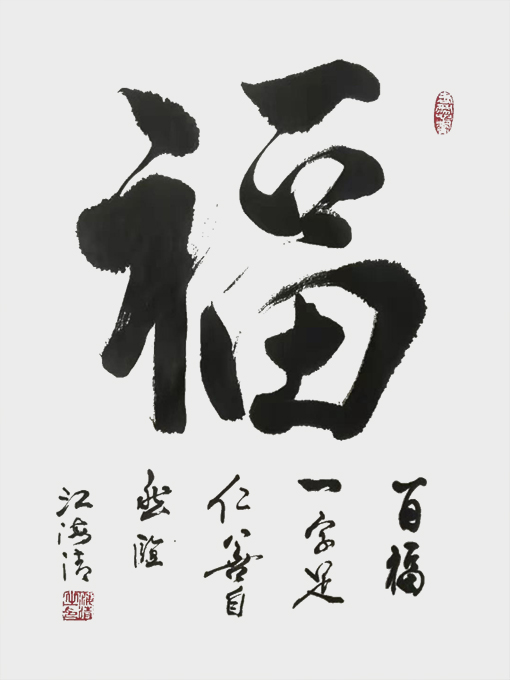 福
百福
一字足
仁善自
然臨
江海清